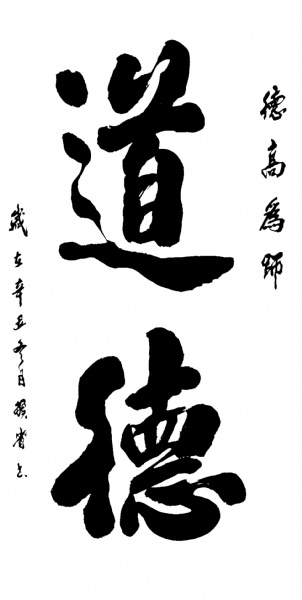 德高為師
道德
歲在辛丑冬月